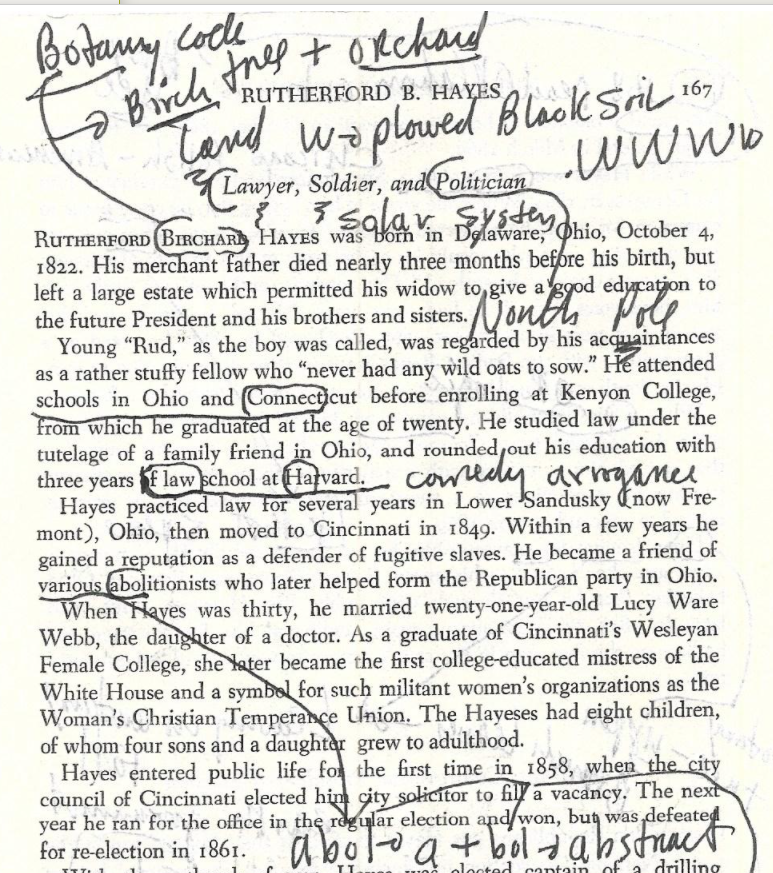 Botany code
Birch tree + orchard
RUTHERFORD B. HAYES 167
Land W→ plowed Black Soil
. W W W W
Lawyer, Soldier, and Politician
solar system
RUTHERFORD BIRCHARD HAYES was born in Delaware, Ohio, October 4,
1822. His merchant father died nearly three months before his birth, but
left a large estate which permitted his widow to give a good education to
the future President and his brothers and sisters.
North Pole
Young "Rud," as the boy was called, was regarded by his acquaintances
as a rather stuffy fellow who "never had any wild oats to sow." He attended
schools in Ohio and Connecticut before enrolling at Kenyon College,
from which he graduated at the age of twenty. He studied law under the
tutelage of a family friend in Ohio, and rounded out his education with
three years of law school at Harvard. comedy arrogance
Hayes practiced law for several years in Lower Sandusky (now Fre-
mont), Ohio, then moved to Cincinnati in 1849. Within a few years he
gained a reputation as a defender of fugitive slaves. He became a friend of
various abolitionists who later helped form the Republican party in Ohio.
When Hayes was thirty, he married twenty-one-year-old Lucy Ware
Webb, the daughter of a doctor. As a graduate of Cincinnati's Wesleyan
Female College, she later became the first college-educated mistress of the
White House and a symbol for such militant women's organizations as the
Woman's Christian Temperance Union. The Hayeses had eight children,
of whom four sons and a daughter grew to adulthood.
Hayes entered public life for the first time in 1858, when the city
council of Cincinnati elected him city solicitor to fill a vacancy. The next
year he ran for the office in the regular election and won, but was defeated
for re-election in 1861.
abol→ a + bol→ abstract
elected captain of a drilling